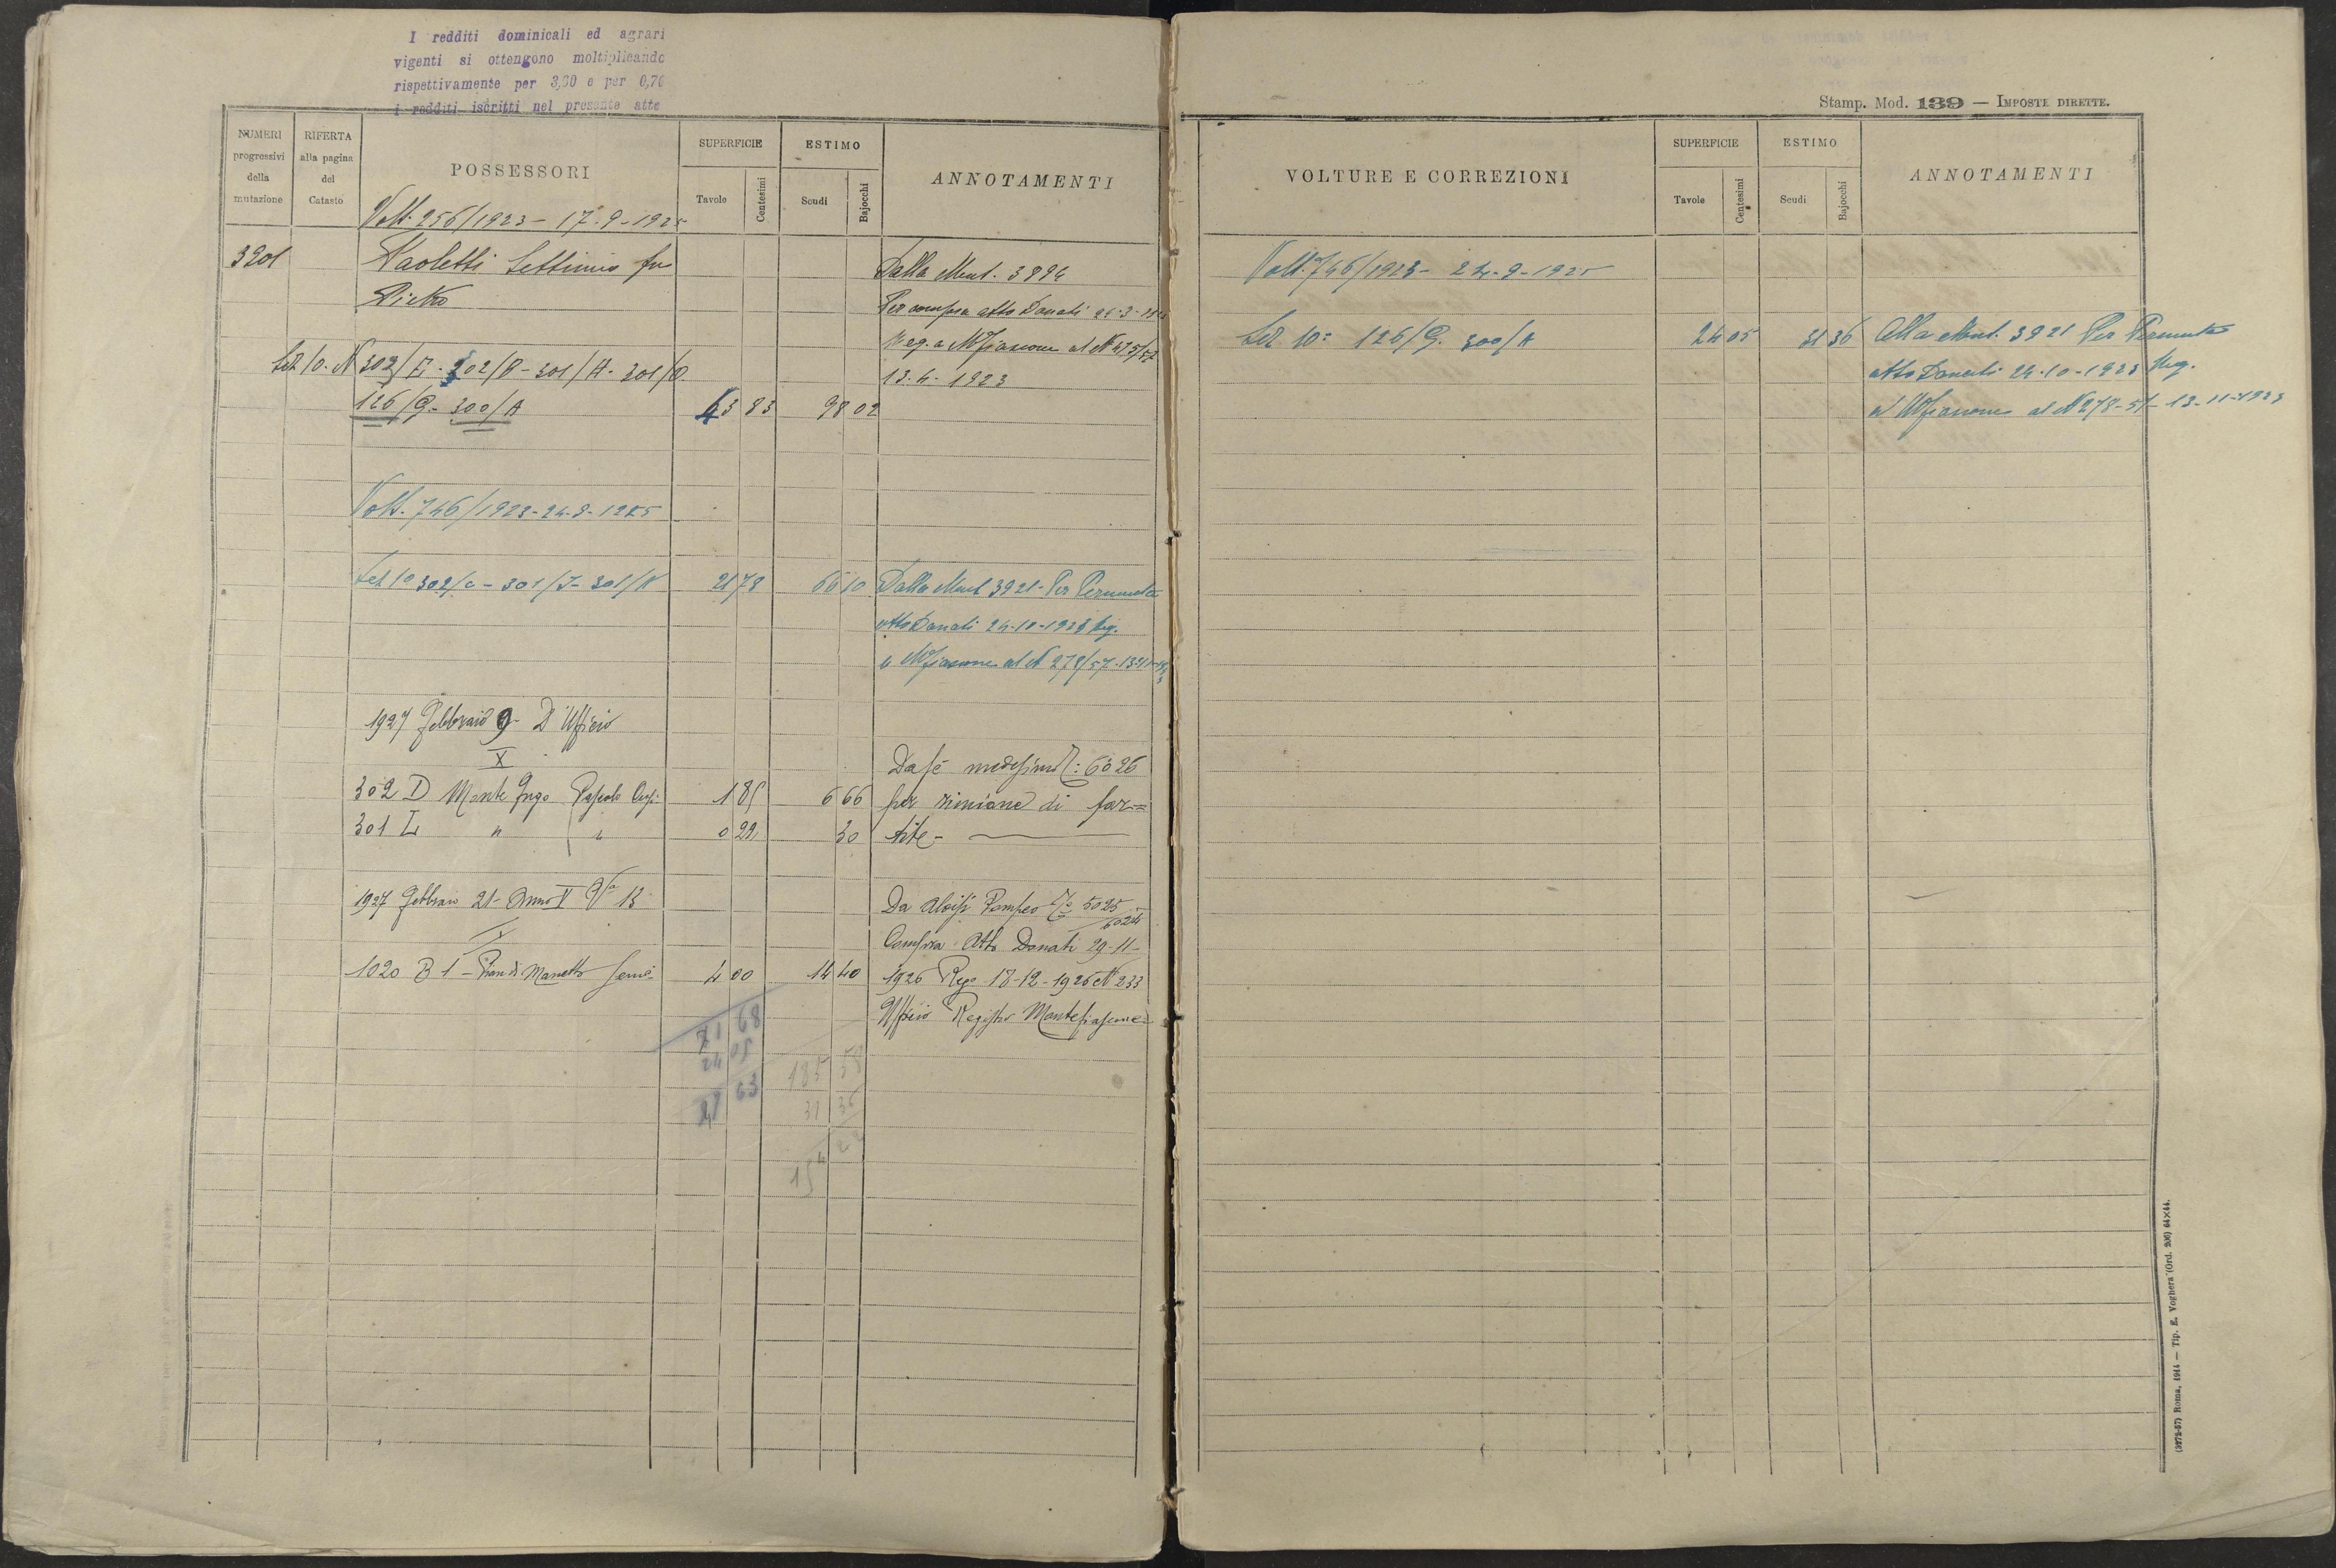 I redditi dominicali ed agrari
vigenti si ottengono moltiplicando
rispettivamente per 3,60 e per 0,70
i redditi iscritti nel presente atto
NUMERI progressivi della mutazione
RIFERTA alla pagina del Catasto
POSSESSORI
SUPERFICIE
Tavole Centesimi
ESTIMO
Scudi Bajocchi
ANNOTAMENTI
Volt. 256/1923 - 17-9-1925
3901 Paoletti Settimio fu Dalla Mut. 3894
Pietro
Per compra atto Donati 24-3-
Reg. a Mfiascone al N 475/57
Sez. 10. N 302/E - 302/B - 301/A - 301/O
13.4.1923
126/G - 300/A 63 83 98 02
Volt. 746/1923-24-9-1925
Sez 1a 302/C - 301/I - 301/N 21 78 66 10 Dalla Mut 3921 - Per Permuta
atto Donati 24-10-1923 Reg.
a Mfiascone al N 278/57-13-11-
1927 Febbraio 9 - D'Ufficio
X
Da se medesimo : 6026
302 D Monte Jugo Pascolo 1 85 6 66 per riunione di par=
301 L " " 0 22 30 tite -
1927 Febbraio 21 - Anno V 13
Da Aloisi Pompeo 5025
6024
Compra Atto Donati 29-11-
1020 B 1 - Pian di Manetto 4 00 14 40 1926 Reg. 18-12-1926 N 233
Ufficio Registro Montefiascone
71 68
24 05
185 58
47 63
31 36
154 22
Stamp. Mod. 139 — IMPOSTE DIRETTE.
VOLTURE E CORREZIONI
SUPERFICIE
Tavole Centesimi
ESTIMO
Scudi Bajocchi
ANNOTAMENTI
Volt. 746/1923 - 24-9-1925
Sez 10a 126/G. 300/A 24 05 31 36 Alla Mut. 3921 Per Permuta
atto Donati 24-10-1923 Reg.
a Mfiascone al N 278-57-13-11-1923
(3272-57) Roma, 1914 — Tip. E. Voghera (Ord. 206) 64×44.